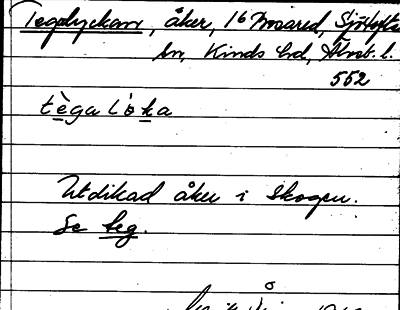 Teglyckan, åker, 16 Mosared, Sjötofta
sn, Kinds hd, Älvsb. l.
552
tègalo̊ka
Utdikad åker i skogen.
Se teg.